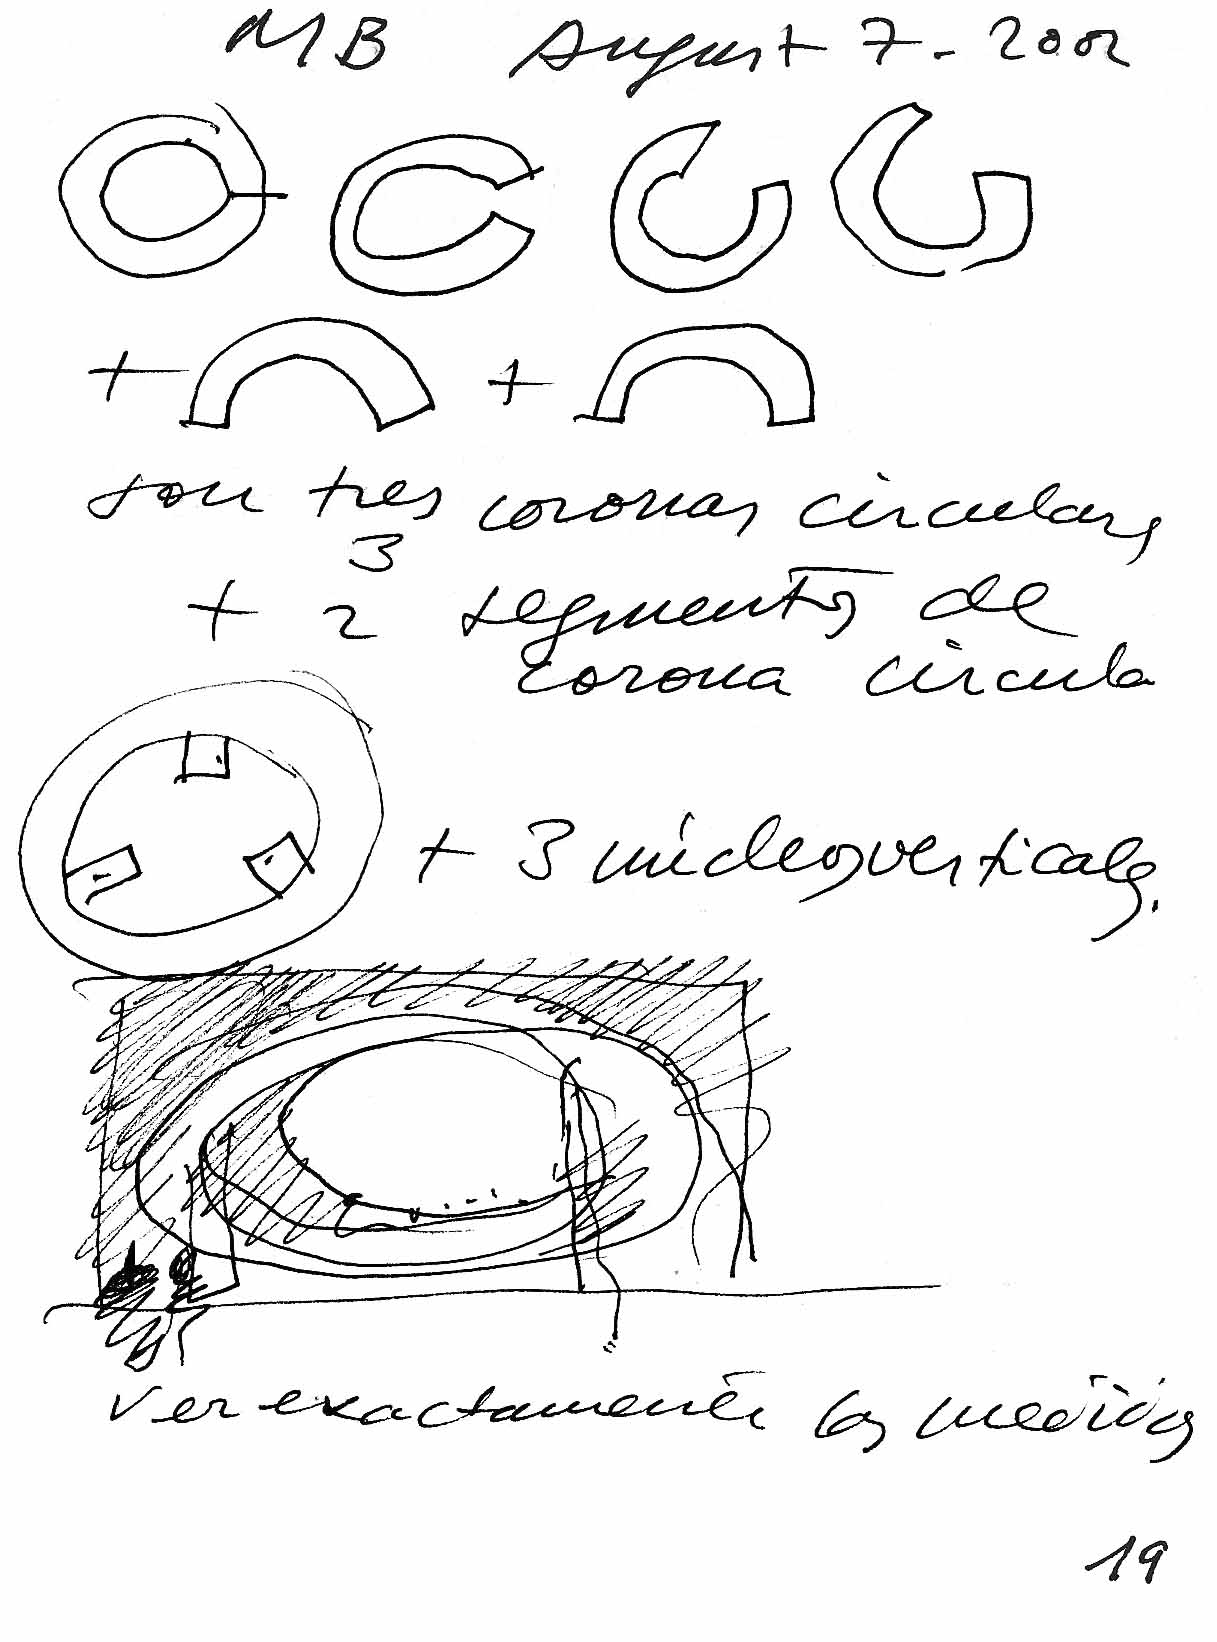 MB August 7 - 2002
+ +
son tres coronas circulares
3
+ 2 segmentos de
corona circula
+ 3 núcleos verticales.
ver exactamente las medidas
19